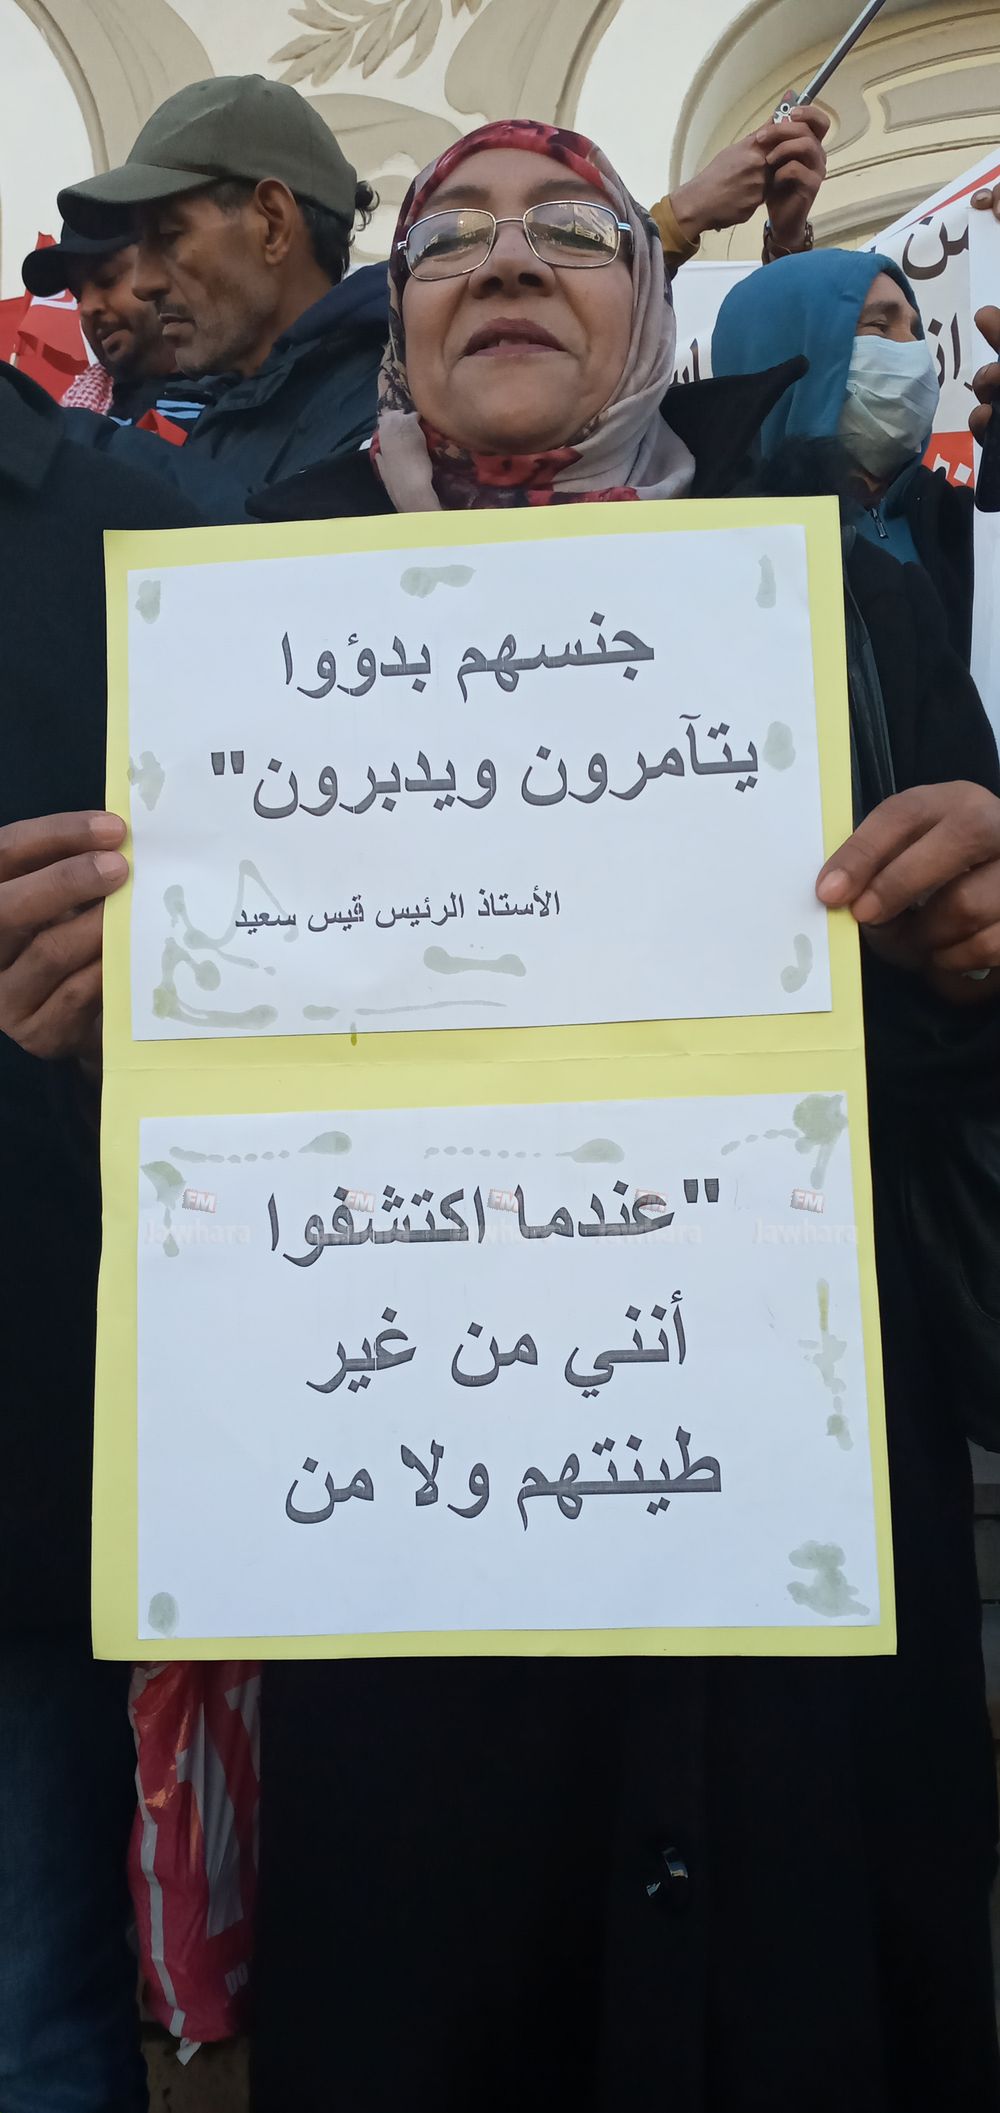 جنسهم بدؤوا
يتآمرون ويدبرون"
الأستاذ الرئيس قيس سعيد
"عندما اكتشفوا
أنني من غير
طينتهم ولا من
FM FM FM FM FM
Jawhara Jawhara Jawhara Jawhara Jawhara
من